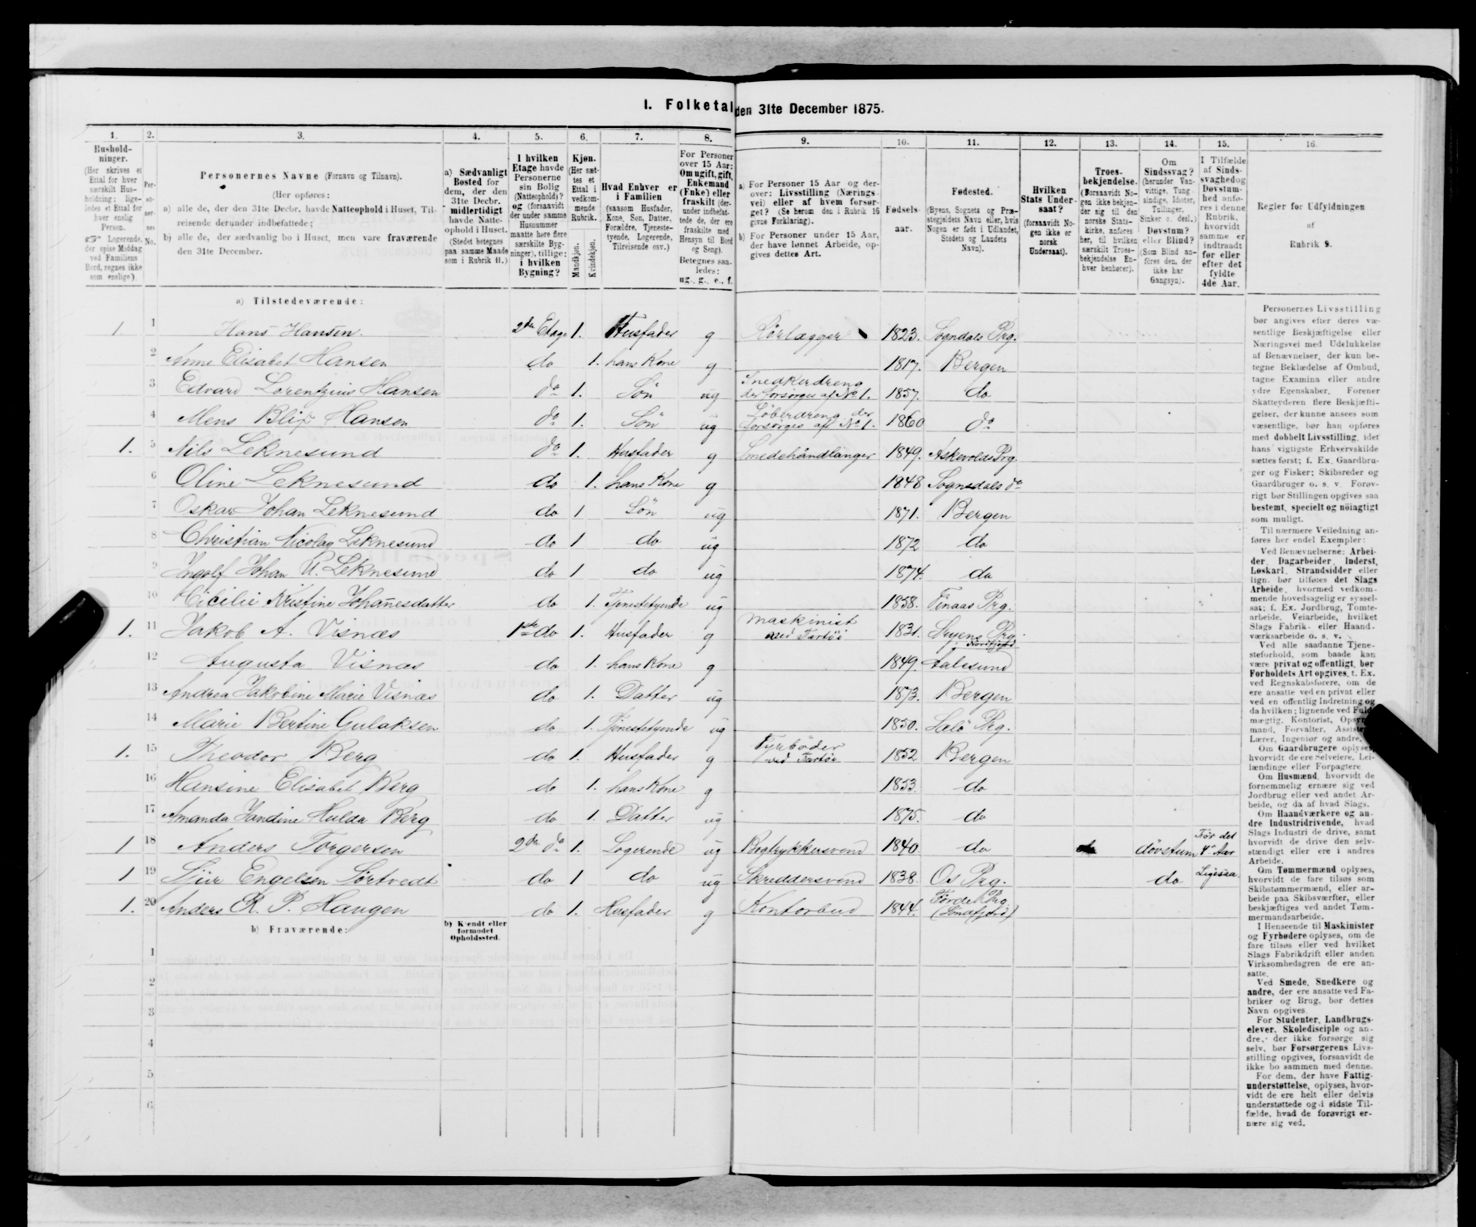 I. Folketal den 31te December 1875.
1. 2. 3. 4. 5. 6. 7. 8. 9. 10. 11. 12. 13. 14. 15. 16.
Husholdninger. (Her skrives et Ettal for hver særskilt Husholdning; ligeledes et Ettal for hver enslig Person. Logerende, der spise Middag ved Familiens Bord, regnes ikke som enslige).
Personernes No.
Personernes Navne (Fornavn og Tilnavn).
(Her opføres:
a) alle de, der den 31te Decbr. havde Natteophold i Huset, Tilreisende derunder indbefattede;
b) alle de, der sædvanlig bo i Huset, men vare fraværende den 31te December.
a) Sædvanligt Bosted for dem, der den 31te Decbr. midlertidigt havde Natteophold i Huset. (Stedet betegnes paa samme Maade som i Rubrik 11.)
I hvilken Etage havde Personerne sin Bolig (Natteophold)? og (forsaavidt der under samme Husnummer maatte høre flere særskilte Bygninger), tillige: i hvilken Bygning?
Kjøn. (Her sættes et Ettal i vedkommende Rubrik.
Mandkjøn. Kvindekjøn.
Hvad Enhver er i Familien (saasom Husfader, Kone, Søn, Datter, Forældre, Tjenestetyende, Logerende, Tilreisende osv.)
For Personer over 15 Aar: Om ugift, gift, Enkemand (Enke) eller fraskilt (derunder indbefattede de, der ere fraskilte med Hensyn til Bord og Seng). Betegnes saaledes: ug., g., e., f.
a) For Personer 15 Aar og derover: Livsstilling (Næringsvei) eller af hvem forsørget? (Se herom den i Rubrik 16 givne Forklaring).
b) For Personer under 15 Aar, der have lønnet Arbeide, opgives dettes Art.
Fødselsaar.
Fødested. (Byens, Sognets og Præstegjeldets Navn eller, hvis Nogen er født i Udlandet, Stedets og Landets Navn).
Hvilken Stats Undersaat? (forsaavidt Nogen ikke er norsk Undersaat).
Troesbekjendelse. (Forsaavidt Nogen ikke bekjender sig til den norske Statskirke, anføres her, til hvilken særskilt Troesbekjendelse Enhver henhører).
Om Sindssvag? (herunder Vanvittige, Tungsindige, Idioter, Tullinger, Sinker o. desl.) Døvstum? eller Blind? (Som Blind anføres den, der ikke har Gangsyn).
I Tilfælde af Sindssvaghed og Døvstumhed anføres i denne Rubrik, hvorvidt samme er indtraadt før eller efter det fyldte 4de Aar.
Regler for Udfyldningen af Rubrik 9.
a) Tilstedeværende:
1 1 Hans Hansen. 2den Etage 1. Husfader g Rørlægger 1823. Sogndals Prg.
2 Anne Elisabet Hansen do 1. hans Kone g 1817. Bergen
3 Edvard Lorentzius Hansen do 1. Søn ug Snedkerdreng der forsørges af No 1. 1857. do
4 Mens Blix Hansen do 1. Søn ug Løberdreng der forsørges af No 1. 1860 do
1. 5 Nils Leknesund do 1. Husfader g Smedehåndlanger 1849. Askevolds Prg
6 Oline Leknesund do 1. hans Kone g 1848 Sogndals do
7 Oskar Johan Leknesund do 1 Søn ug 1871. Bergen
8 Christian Nicolay Leknesund do 1 do ug 1872 do
9 Ingolf Johan Leknesund do 1 do ug 1874. do
10 Cicilie Kristine Johannesdatter do 1. Tjenestetyende ug 1858. Finaas Prg.
1. 11 Jakob A. Visnæs 1ste do 1. Husfader g Maskinist ved Fartøi 1831. Prg.
12 Augusta Visnæs do 1. hans Kone g 1849. Aalesund
13 Andrea Jakobine Marie Visnæs do 1. Datter ug 1873. Bergen
14 Marie Bertine Gulaksen do 1. Tjenestetyende ug 1850. Prg.
1. 15 Theodor Berg do 1. Husfader g Fyrbøder ved Fartøi 1852 Bergen
16 Hansine Elisabet Berg do 1. hans Kone g 1853 do
17 Amanda Jandine Hulda Berg do 1 Datter ug 1875. do
1 18 Anders Torgersen 2den do 1. Logerende ug Bogtrykkersvend 1840. do døvstum Før det 4de Aar
1 19 Engelsen Sørtvedt do 1 do ug Skreddersvend 1838. Os Prg. do Ligesaa
1. 20 Anders R. P. Haugen do 1. Husfader g Kontorbud 1844. Førde Prg (Søndfjord)
b) Fraværende:
b) Kjendt eller formodet Opholdssted.
1
2
3
4
5
6
Personernes Livsstilling
bør angives efter deres væ-
sentlige Beskjæftigelse eller
Næringsvei med Udelukkelse
af Benævnelser, der kun be-
tegne Beklædelse af Ombud,
tagne Examina eller andre
ydre Egenskaber. Forener
Skatteyderen flere Beskjæfti-
gelser, der kunne ansees som
væsentlige, bør han opføres
med dobbelt Livsstilling, idet
hans vigtigste Erhvervskilde
sættes først; f. Ex. Gaardbru-
ger og Fisker; Skibsreder og
Gaardbruger o. s. v. Forøv-
rigt bør Stillingen opgives saa
bestemt, specielt og nøiagtigt
som muligt.
Til nærmere Veiledning an-
føres her endel Exempler:
Ved Benævnelserne: Arbei-
der, Dagarbeider, Inderst,
Løskarl, Strandsidder eller
lign. bør tilføies det Slags
Arbeide, hvormed vedkom-
mende hovedsagelig er syssel-
sat; f. Ex. Jordbrug, Tomte-
arbeide, Veiarbeide, hvilket
Slags Fabrik- eller Haand-
værksarbeide o. s. v.
Ved alle saadanne Tjene-
steforhold, som baade kan
være privat og offentligt, bør
Forholdets Art opgives, f. Ex.
ved Regnskabsførere, om de
ere ansatte ved en privat eller
ved en offentlig Indretning og
da hvilken; lignende ved Fuld-
mægtig, Kontorist, Opsyns-
mand, Forvalter, Assistent,
Lærer, Ingeniør og andre.
Om Gaardbrugere oplyses,
hvorvidt de ere Selveiere, Lei-
lændinge eller Forpagtere
Om Husmænd, hvorvidt de
fornemmelig ernære sig ved
Jordbrug eller ved andet Ar-
beide, og da af hvad Slags.
Om Haandværkere og an-
dre Industridrivende, hvad
Slags Industri de drive, samt
hvorvidt de drive den selv-
stændigt eller ere i andres
Arbeide.
Om Tømmermænd oplyses,
hvorvidt de fare tilsøs som
Skibstømmermænd, eller ar-
beide paa Skibsværfter, eller
beskjæftiges ved andet Tøm-
mermandsarbeide.
I Henseende til Maskinister
og Fyrbødere oplyses, om de
fare tilsøs eller ved hvilket
Slags Fabrikdrift eller anden
Virksomhedsgren de ere an-
satte.
Ved Smede, Snedkere og
andre, der ere ansatte ved Fa-
briker og Brug, bør dettes
Navn opgives
For Studenter, Landbrugs-
elever, Skoledisciple og an-
dre, der ikke forsørge sig
selv, bør Forsørgerens Livs-
stilling opgives, forsaavidt de
ikke bo sammen med denne.
For dem, der have Fattig-
understøttelse, oplyses, hvor-
vidt de ere helt eller delvis
understøttede og i sidste Til-
fælde, hvad de forøvrigt er-
nære sig ved.